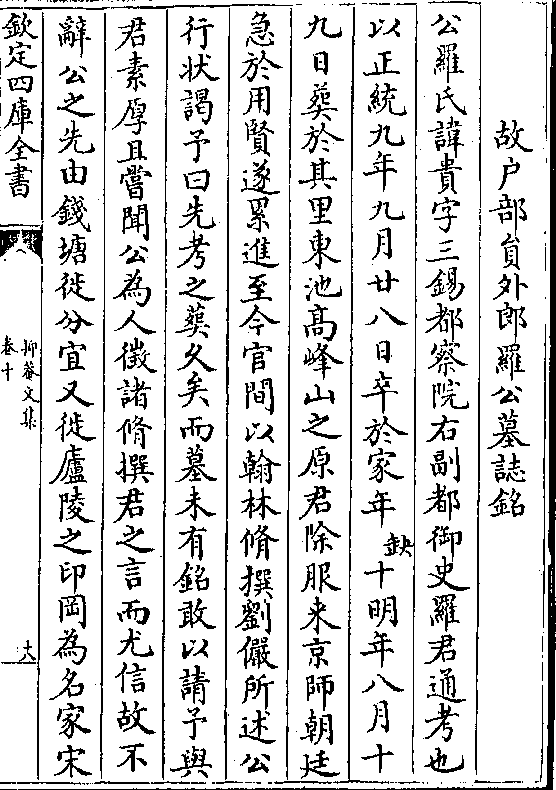 故户部貟外郎羅公墓誌銘
公羅氏諱貴字三錫都察院右副都御史羅君通考也
以正統九年九月廿八日卒於家年缺十明年八月十
九日葬於其里東池髙峰山之原君除服来京師朝廷
急於用賢遂累進至今官間以翰林脩撰劉儼所述公
行状謁予曰先考之葬久矣而墓未有銘敢以請予與
君素厚且嘗聞公為人徵諸脩撰君之言而尤信故不
辭公之先由錢塘徙分宜又徙廬陵之印岡為名家宋
欽定四庫全書
抑菴文集
卷十
大